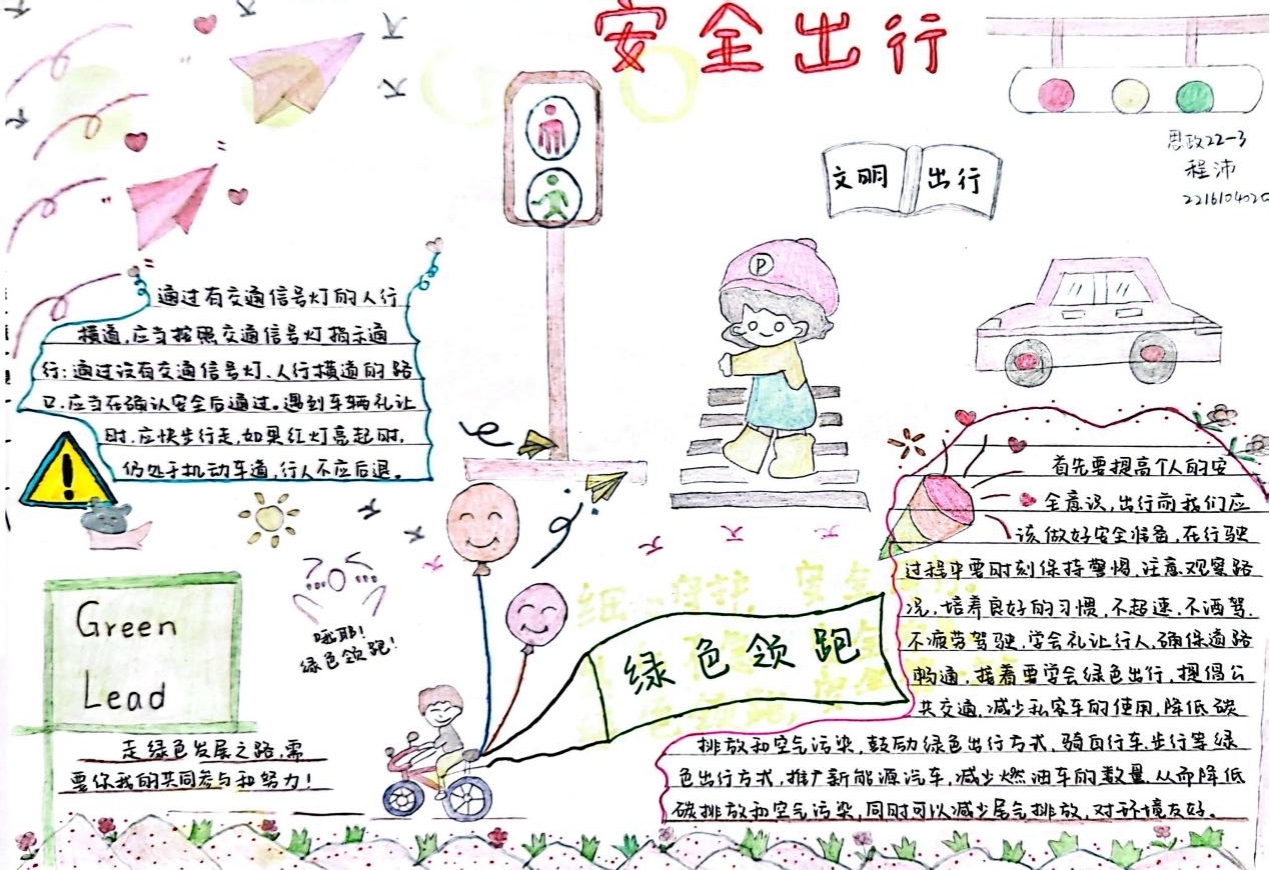 安全出行
思政22-3
程沛
文明 出行
P
通过有交通信号灯的人行
横道,应当按照交通信号灯指示通
行;通过没有交通信号灯、人行横道的路
口,应当在确认安全后通过。遇到车辆礼让
时,应快步行走,如果红灯亮起时,
仍处于机动车道,行人不应后退。
首先要提高个人的安
全意识,出行前我们应
该做好安全准备,在行驶
过程中要时刻保持警惕,注意观察路
况,培养良好的习惯,不超速,不酒驾,
不疲劳驾驶,学会礼让行人,确保道路
畅通,接着要学会绿色出行,提倡公
共交通,减少私家车的使用,降低碳
排放和空气污染,鼓励绿色出行方式,骑自行车、步行等绿
色出行方式,推广新能源汽车,减少燃油车的数量,从而降低
碳排放和空气污染,同时可以减少尾气排放,对环境友好。
Green
Lead
哦耶!
绿色领跑!
绿色领跑
走绿色发展之路,需
要你我的共同参与和努力!